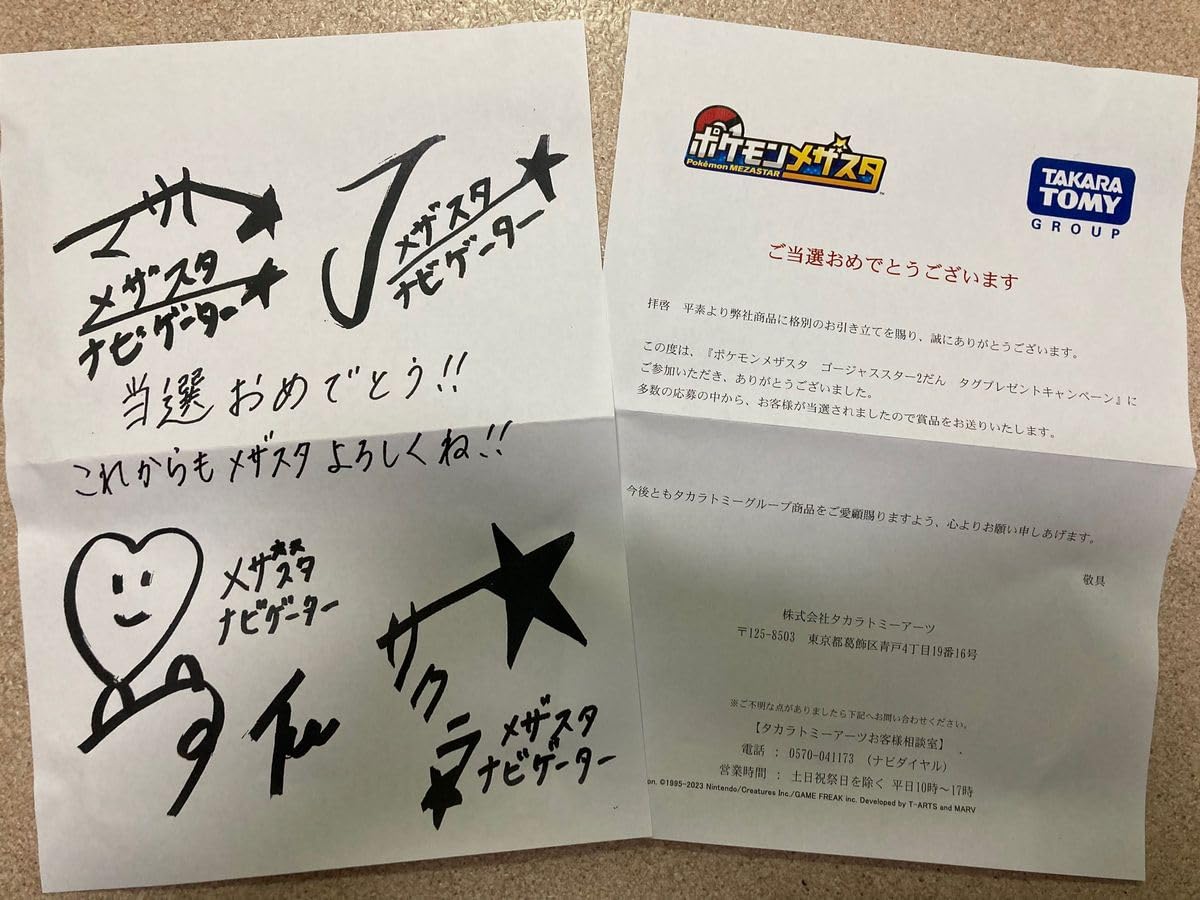 マサ
メザスタ
ナビゲーター
J
メザスタ
ナビゲーター
当選おめでとう!!
これからもメザスタよろしくね!!
メザスタ
ナビゲーター
サクラ
メザスタ
ナビゲーター
ポケモンメザスタ
Pokémon MEZASTAR
TM
TAKARA
TOMY
GROUP
ご当選おめでとうございます
拝啓　平素より弊社商品に格別のお引き立てを賜り、誠にありがとうございます。
この度は、『ポケモンメザスタ　ゴージャススター2だん　タグプレゼントキャンペーン』に
ご参加いただき、ありがとうございました。
多数の応募の中から、お客様が当選されましたので賞品をお送りいたします。
今後ともタカラトミーグループ商品をご愛顧賜りますよう、心よりお願い申しあげます。
敬具
株式会社タカラトミーアーツ
〒125-8503　東京都葛飾区青戸4丁目19番16号
※ご不明な点がありましたら下記へお問い合わせください。
【タカラトミーアーツお客様相談室】
電話 ： 0570-041173 （ナビダイヤル）
営業時間 ： 土日祝祭日を除く 平日10時～17時
on. ©1995-2023 Nintendo/Creatures Inc./GAME FREAK inc. Developed by T-ARTS and MARV